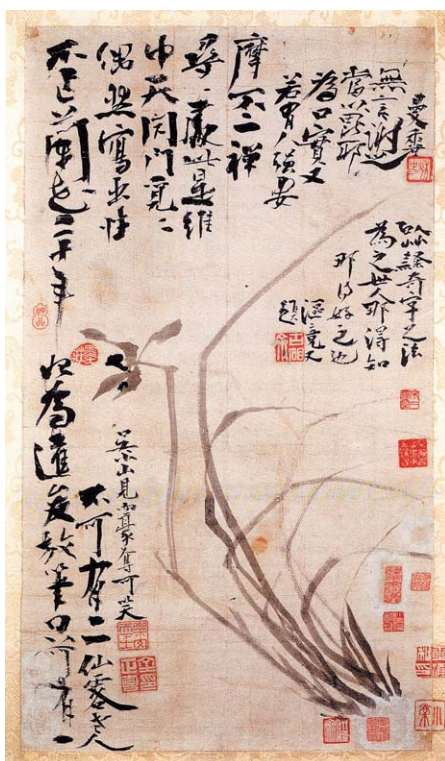 不作蘭花二十年
偶然寫出性
中天閉門覓〻
尋〻處此是維
摩不二禪
若有人强要
為口實又
當以毘耶
無言謝之
曼香
以艸隸奇字之法
為之世人那得知
那得好之也
漚竟又
題
始為達夋放筆只可有一
不可有二仙客老人
吳小山見而豪奪可笑